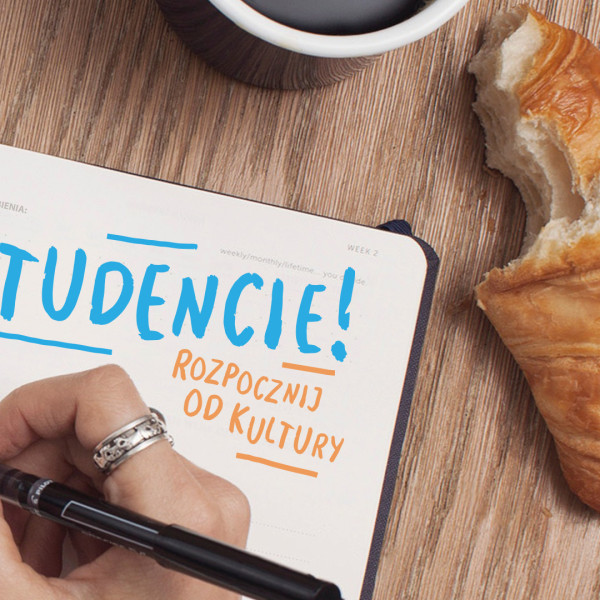 IENIA:
WEEK 7
weekly/monthly/lifetime... you made
TUDENCIE!
ROZPOCZNIJ
OD KULTURY